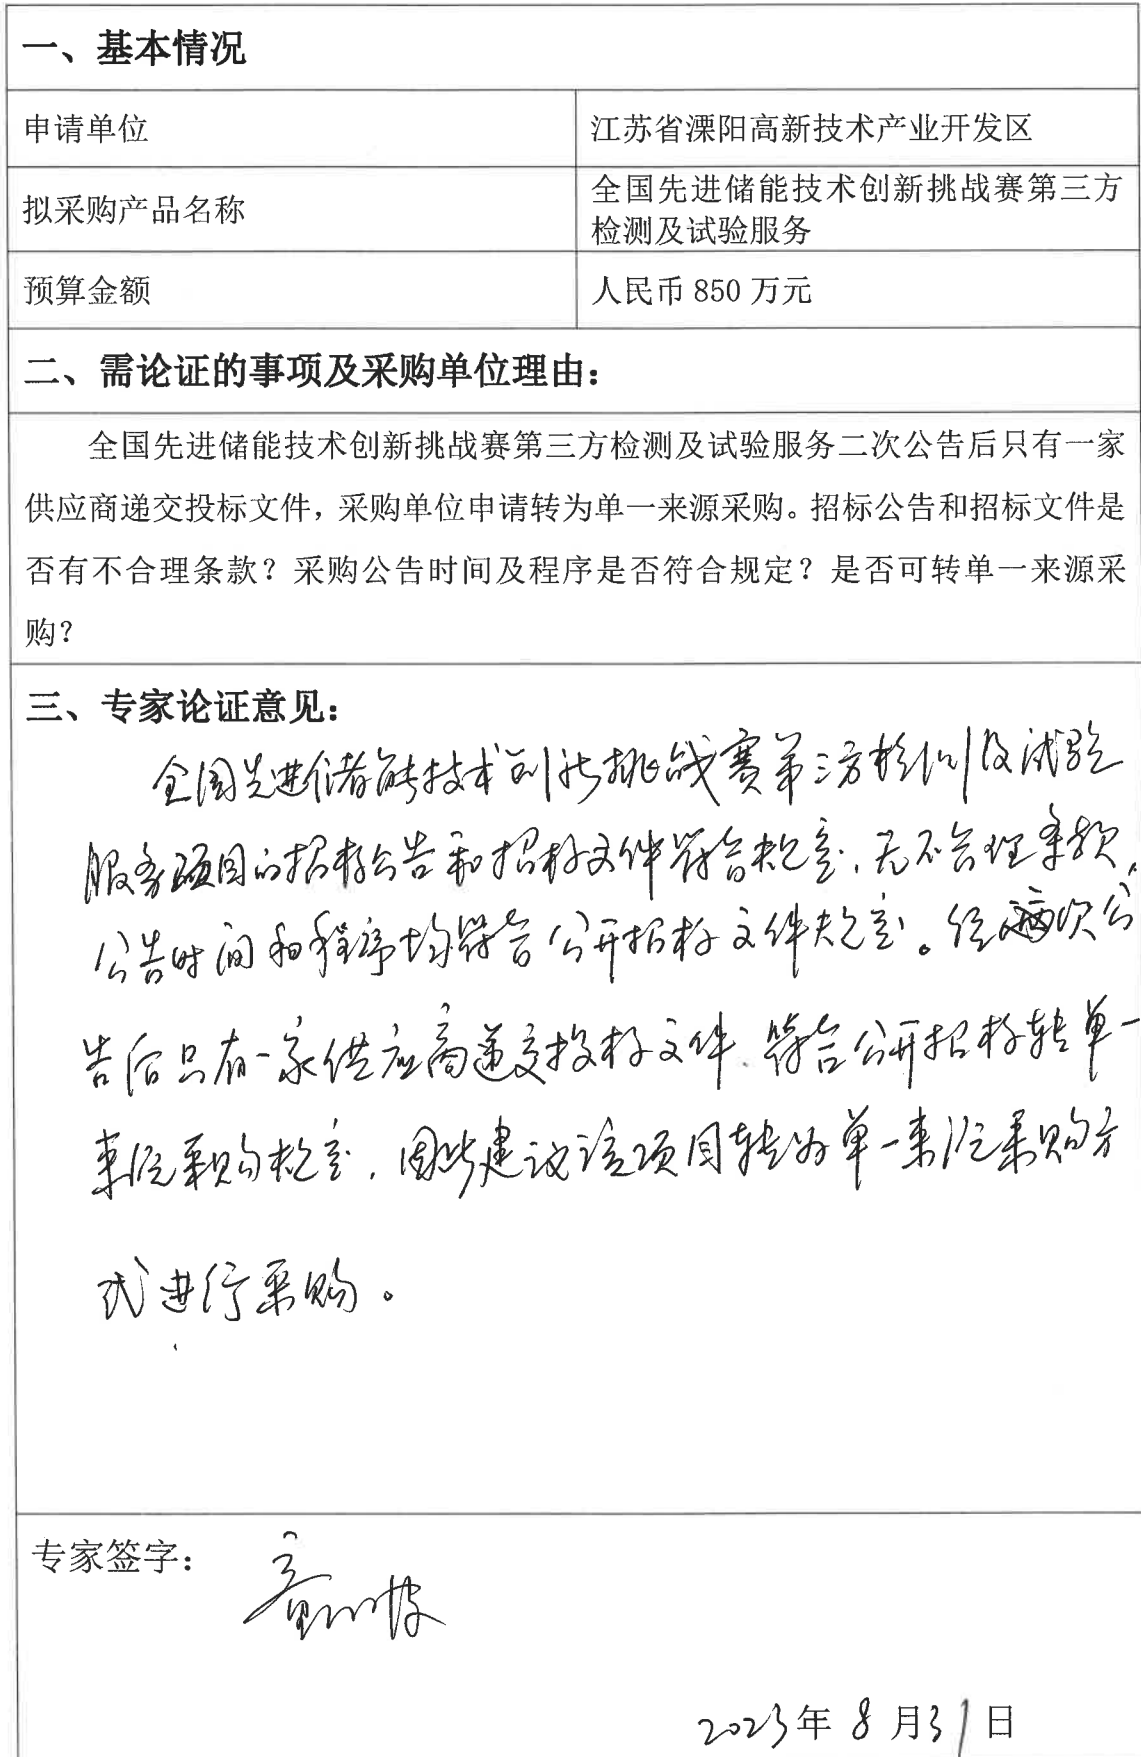 一、基本情况
申请单位
江苏省溧阳高新技术产业开发区
拟采购产品名称
全国先进储能技术创新挑战赛第三方
检测及试验服务
预算金额
人民币 850 万元
二、需论证的事项及采购单位理由：
全国先进储能技术创新挑战赛第三方检测及试验服务二次公告后只有一家
供应商递交投标文件，采购单位申请转为单一来源采购。招标公告和招标文件是
否有不合理条款？采购公告时间及程序是否符合规定？是否可转单一来源采
购？
三、专家论证意见：
全国先进储能技术创新挑战赛第三方检测及试验
服务项目的招标公告和招标文件符合规定，无不合理条款，
公告时间和程序均符合公开招标文件规定。经两次公
告后只有一家供应商递交投标文件、符合公开招标转单一
来源采购规定，因此建议该项目转为单一来源采购方
式进行采购。
专家签字：
2023年 8 月31日